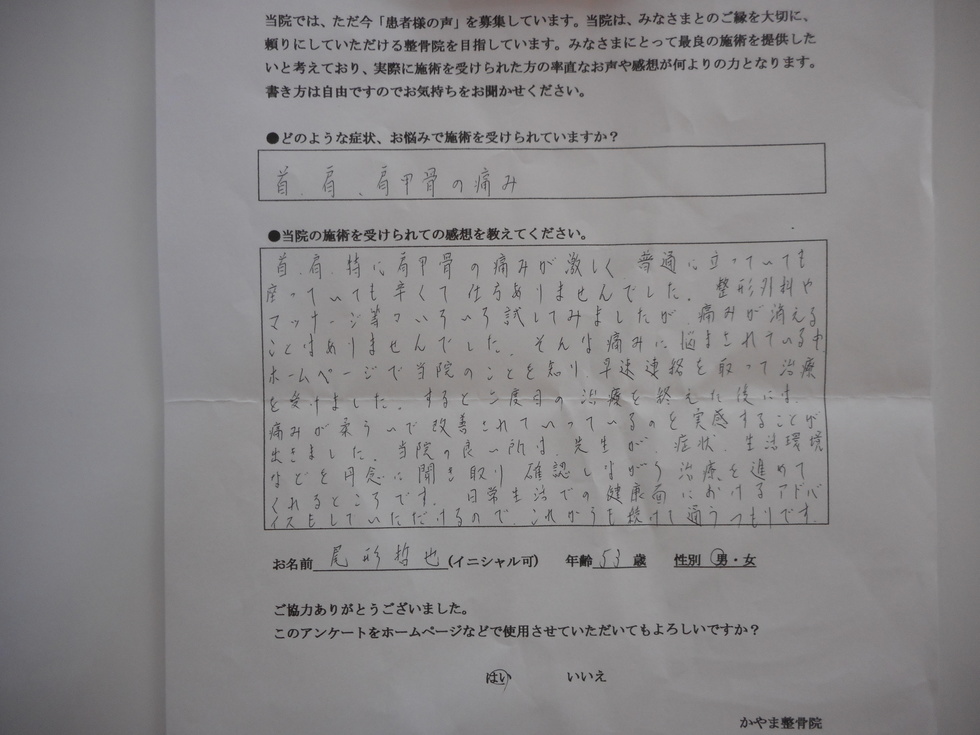 当院では、ただ今「患者様の声」を募集しています。当院は、みなさまとのご縁を大切に、
頼りにしていただける整骨院を目指しています。みなさまにとって最良の施術を提供した
いと考えており、実際に施術を受けられた方の率直なお声や感想が何よりの力となります。
書き方は自由ですのでお気持ちをお聞かせください。
●どのような症状、お悩みで施術を受けられていますか？
首、肩、肩甲骨の痛み
●当院の施術を受けられての感想を教えてください。
首、肩、特に肩甲骨の痛みが激しく 普通に立っていても
座っていても辛くて仕方ありませんでした。整形外科や
マッサージ等でいろいろ試してみましたが、痛みが消える
ことはありませんでした。そんな痛みに悩まされている中、
ホームページで当院のことを知り、早速連絡を取って治療
を受けました。すると二度目の治療を終えた後には、
痛みが柔らいで改善されていっているのを実感することが
出来ました。当院の良い所は、先生が、症状、生活環境
などを丹念に聞き取り 確認しながら 治療を進めて
くれるところです。日常生活での健康面におけるアドバ
イスもしていただけるので、これからも続けて通うつもりです。
お名前 尾形哲也 (イニシャル可) 年齢 53 歳 性別 男・女
ご協力ありがとうございました。
このアンケートをホームページなどで使用させていただいてもよろしいですか？
はい いいえ
かやま整骨院